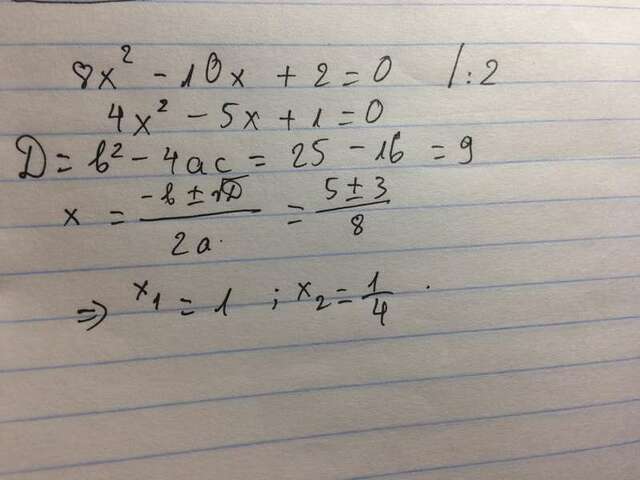 8x² - 10x + 2 = 0 /:2
4x² - 5x + 1 = 0
D = b² - 4ac = 25 - 16 = 9
x = (-b ± √D)/2a = (5 ± 3)/8
⇒ x₁ = 1 ; x₂ = 1/4.